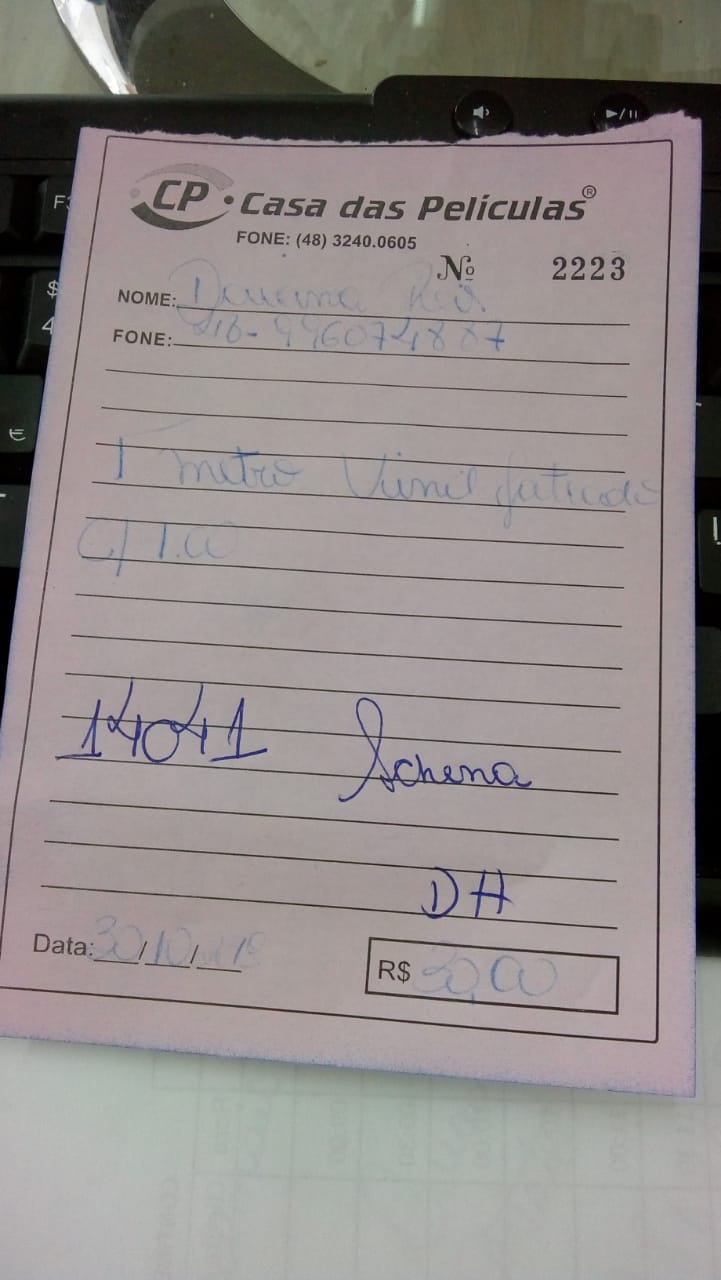 CP • Casa das Películas®
FONE: (48) 3240.0605
Nº 2223
NOME:
FONE: 996074887
1 metro Vinil
C/ 1.00
14041 Schena
DH
Data: 30/10/
R$ 30,00